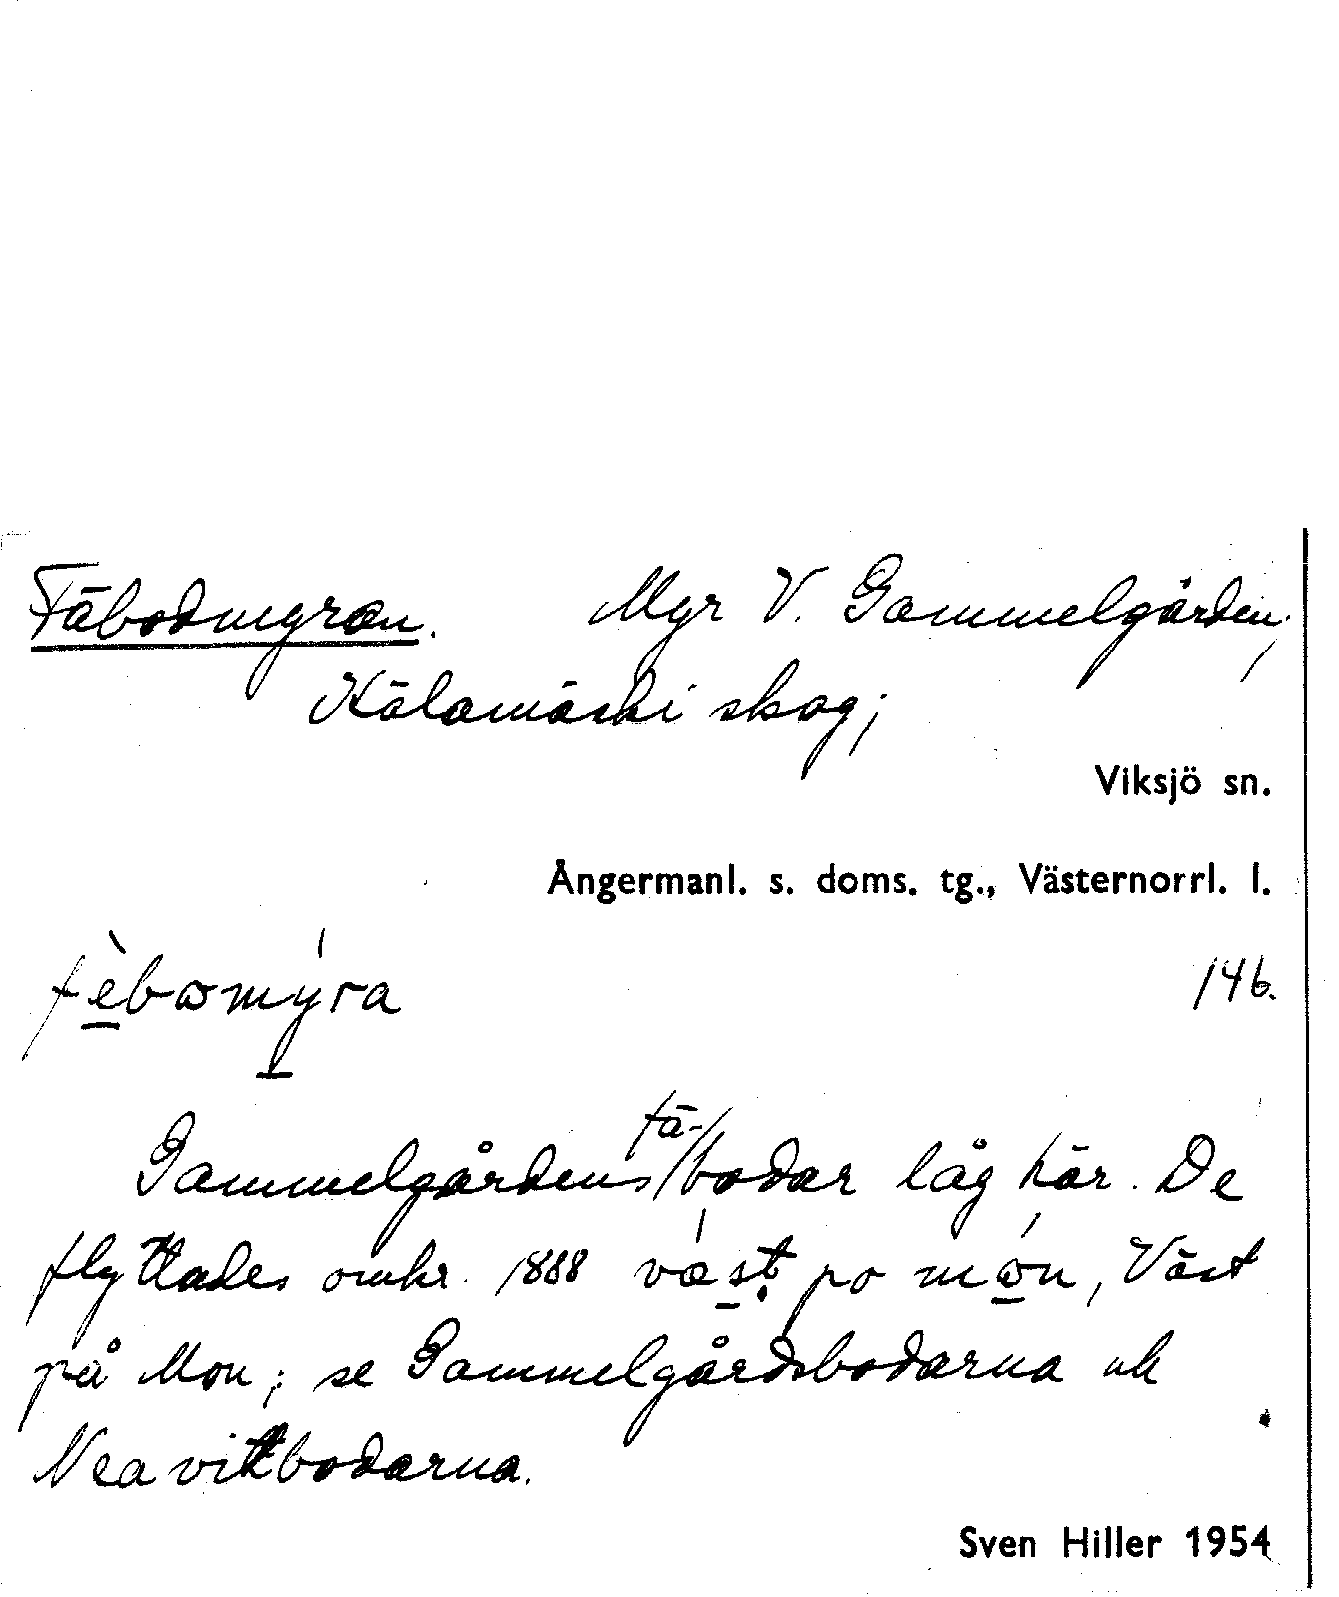 Fäbodmyran. Myr V. Gammelgården,
skog;
Viksjö sn.
Ångermanl. s. doms. tg., Västernorrl. l.
fæ̀bωmýra 146.
Gammelgårdens fä-bodar låg här. De
flyttades omkr. 1888 væst po mωn, Väst
på Mon; se Gammelgårdsbodarna ock
Neavitbodarna.
Sven Hiller 1954